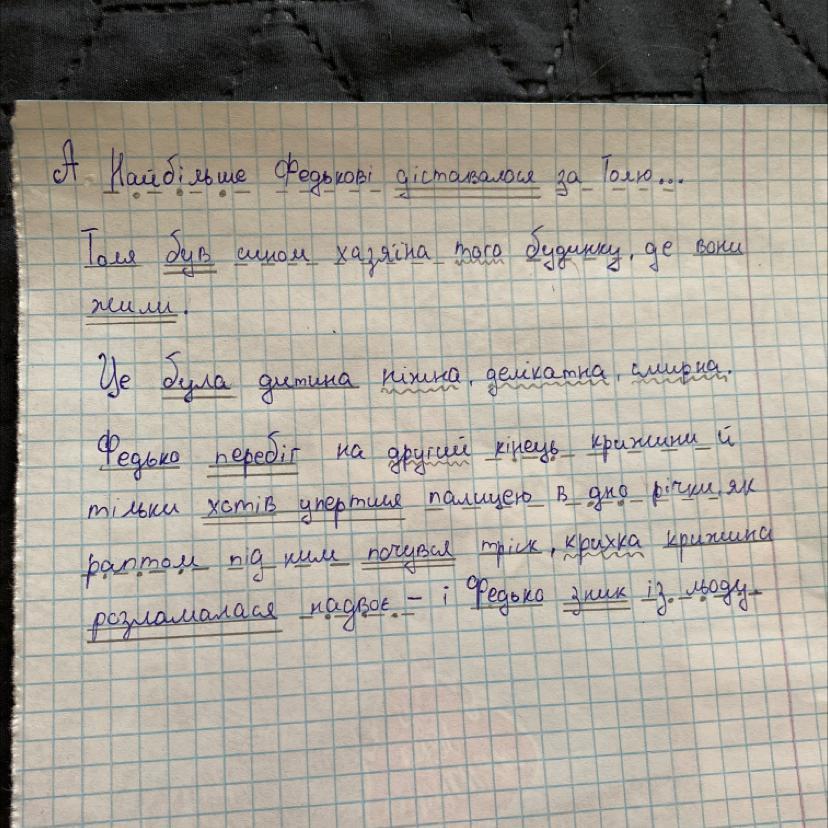 А Найбільше Федькові діставалося за Толю...
Толя був сином хазяїна того будинку, де вони
жили.
Це була дитина ніжна, делікатна, смирна.
Федько перебіг на другий кінець крижини й
тільки хотів упертися палицею в дно річки, як
раптом під ним почувся тріск, крихка крижина
розламалася надвоє – і Федько зник із льоду.